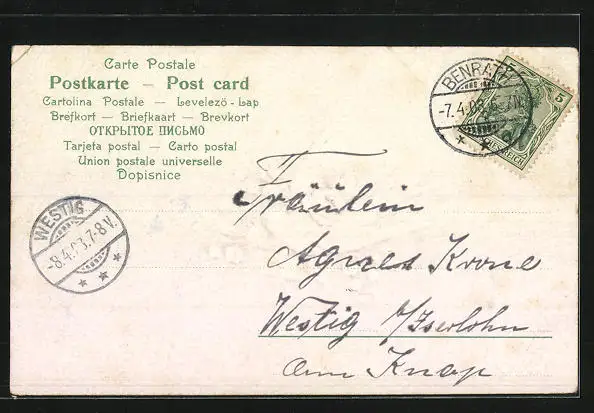 Carte Postale
Postkarte – Post card
Cartolina Postale – Levelező-Lap
Brefkort – Briefkaart – Brevkort
ОТКРЫТОЕ ПИСЬМО
Tarjeta postal – Carto postal
Union postale universelle
Dopisnice
BENRATH
-7.4.03.
5
WESTIG
-8.4.03.7-8V.
Fräulein
Agnes Krone
Westig b/Iserlohn
Am Knap